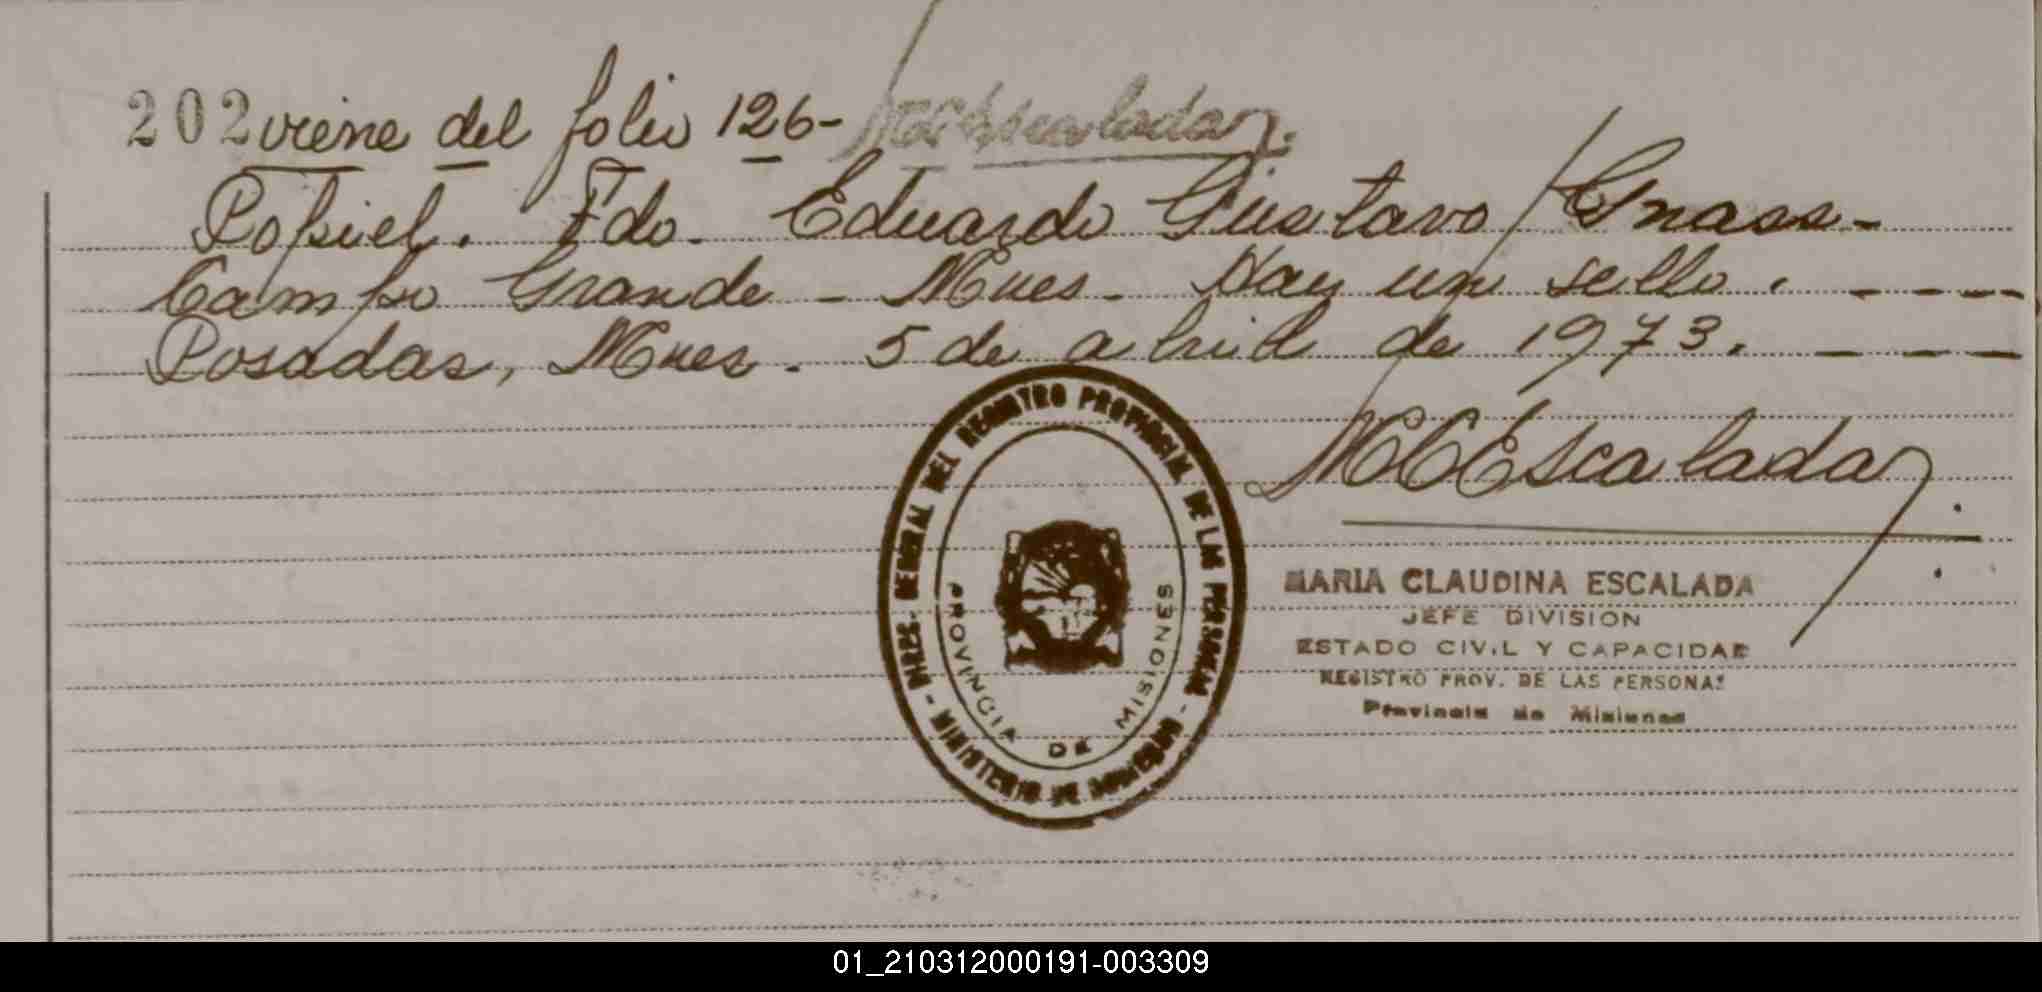 202 viene del folio 126- MCEscalada.
Popiel. Fdo. Eduardo Gustavo Gnass-
Campo Grande - Mnes - Hay un sello. - - - -
Posadas, Mnes. 5 de abril de 1973. - - -
MCEscalada
DIREC. GENERAL DEL REGISTRO PROVINCIAL DE LAS PERSONAS - MINISTERIO DE GOBIERNO -
PROVINCIA DE MISIONES
MARIA CLAUDINA ESCALADA
JEFE DIVISION
ESTADO CIVIL Y CAPACIDAD
REGISTRO PROV. DE LAS PERSONAS
Provincia de Misiones
01_210312000191-003309